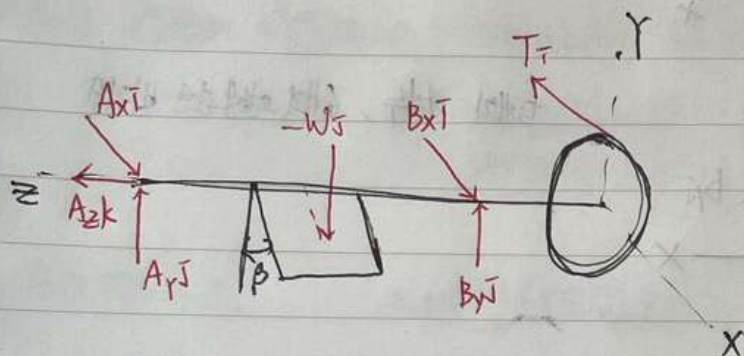 .Y
Ti
Axi
-Wj
Bxi
Z
Azk
Ayj
β
Byj
X